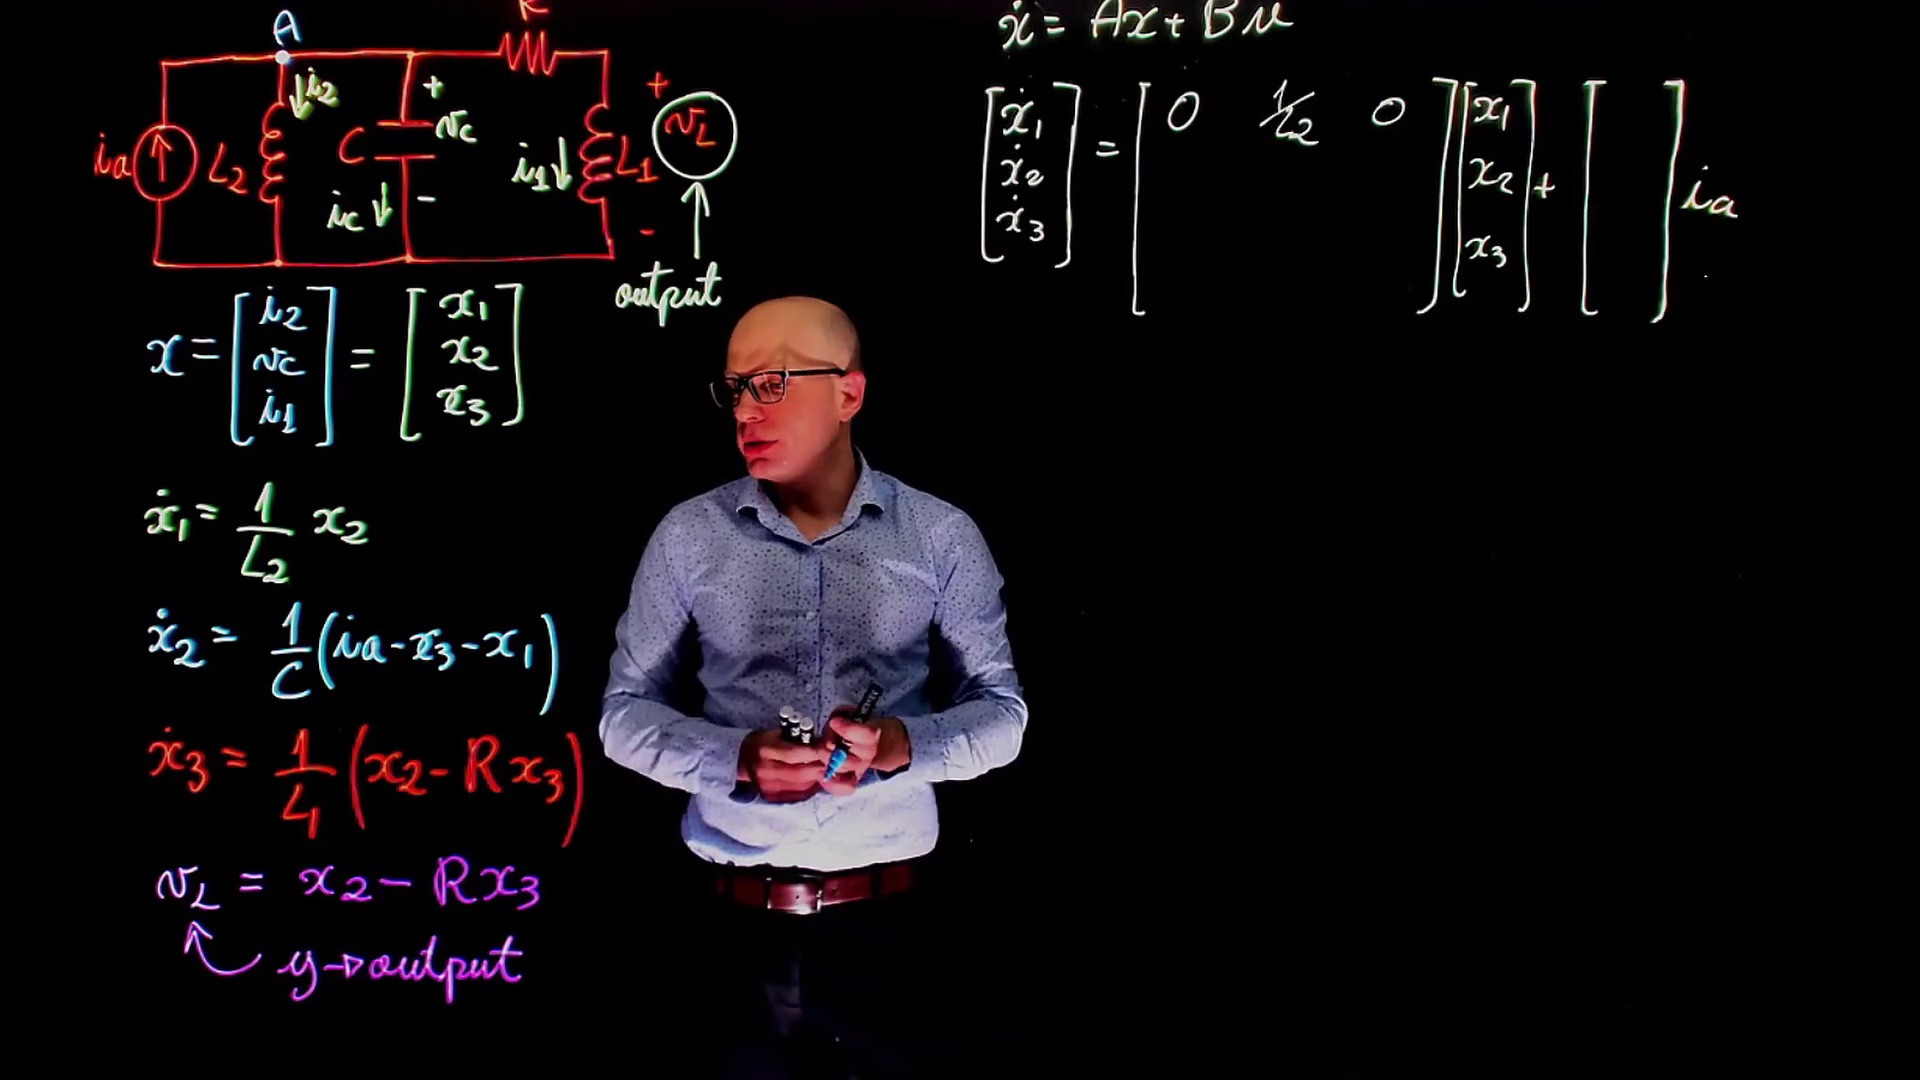 A
R
i2
+
vc
-
C
ic
ia
L2
i1
L1
+
vL
-
output
x = [ i2 vc i1 ] = [ x1 x2 x3 ]
ẋ1 = 1/L2 x2
ẋ2 = 1/C (ia - x3 - x1)
ẋ3 = 1/L1 (x2 - Rx3)
vL = x2 - Rx3
y → output
ẋ = Ax + Bu
[ ẋ1 ẋ2 ẋ3 ] = [ 0 1/L2 0 ] [ x1 x2 x3 ] + [ ] ia